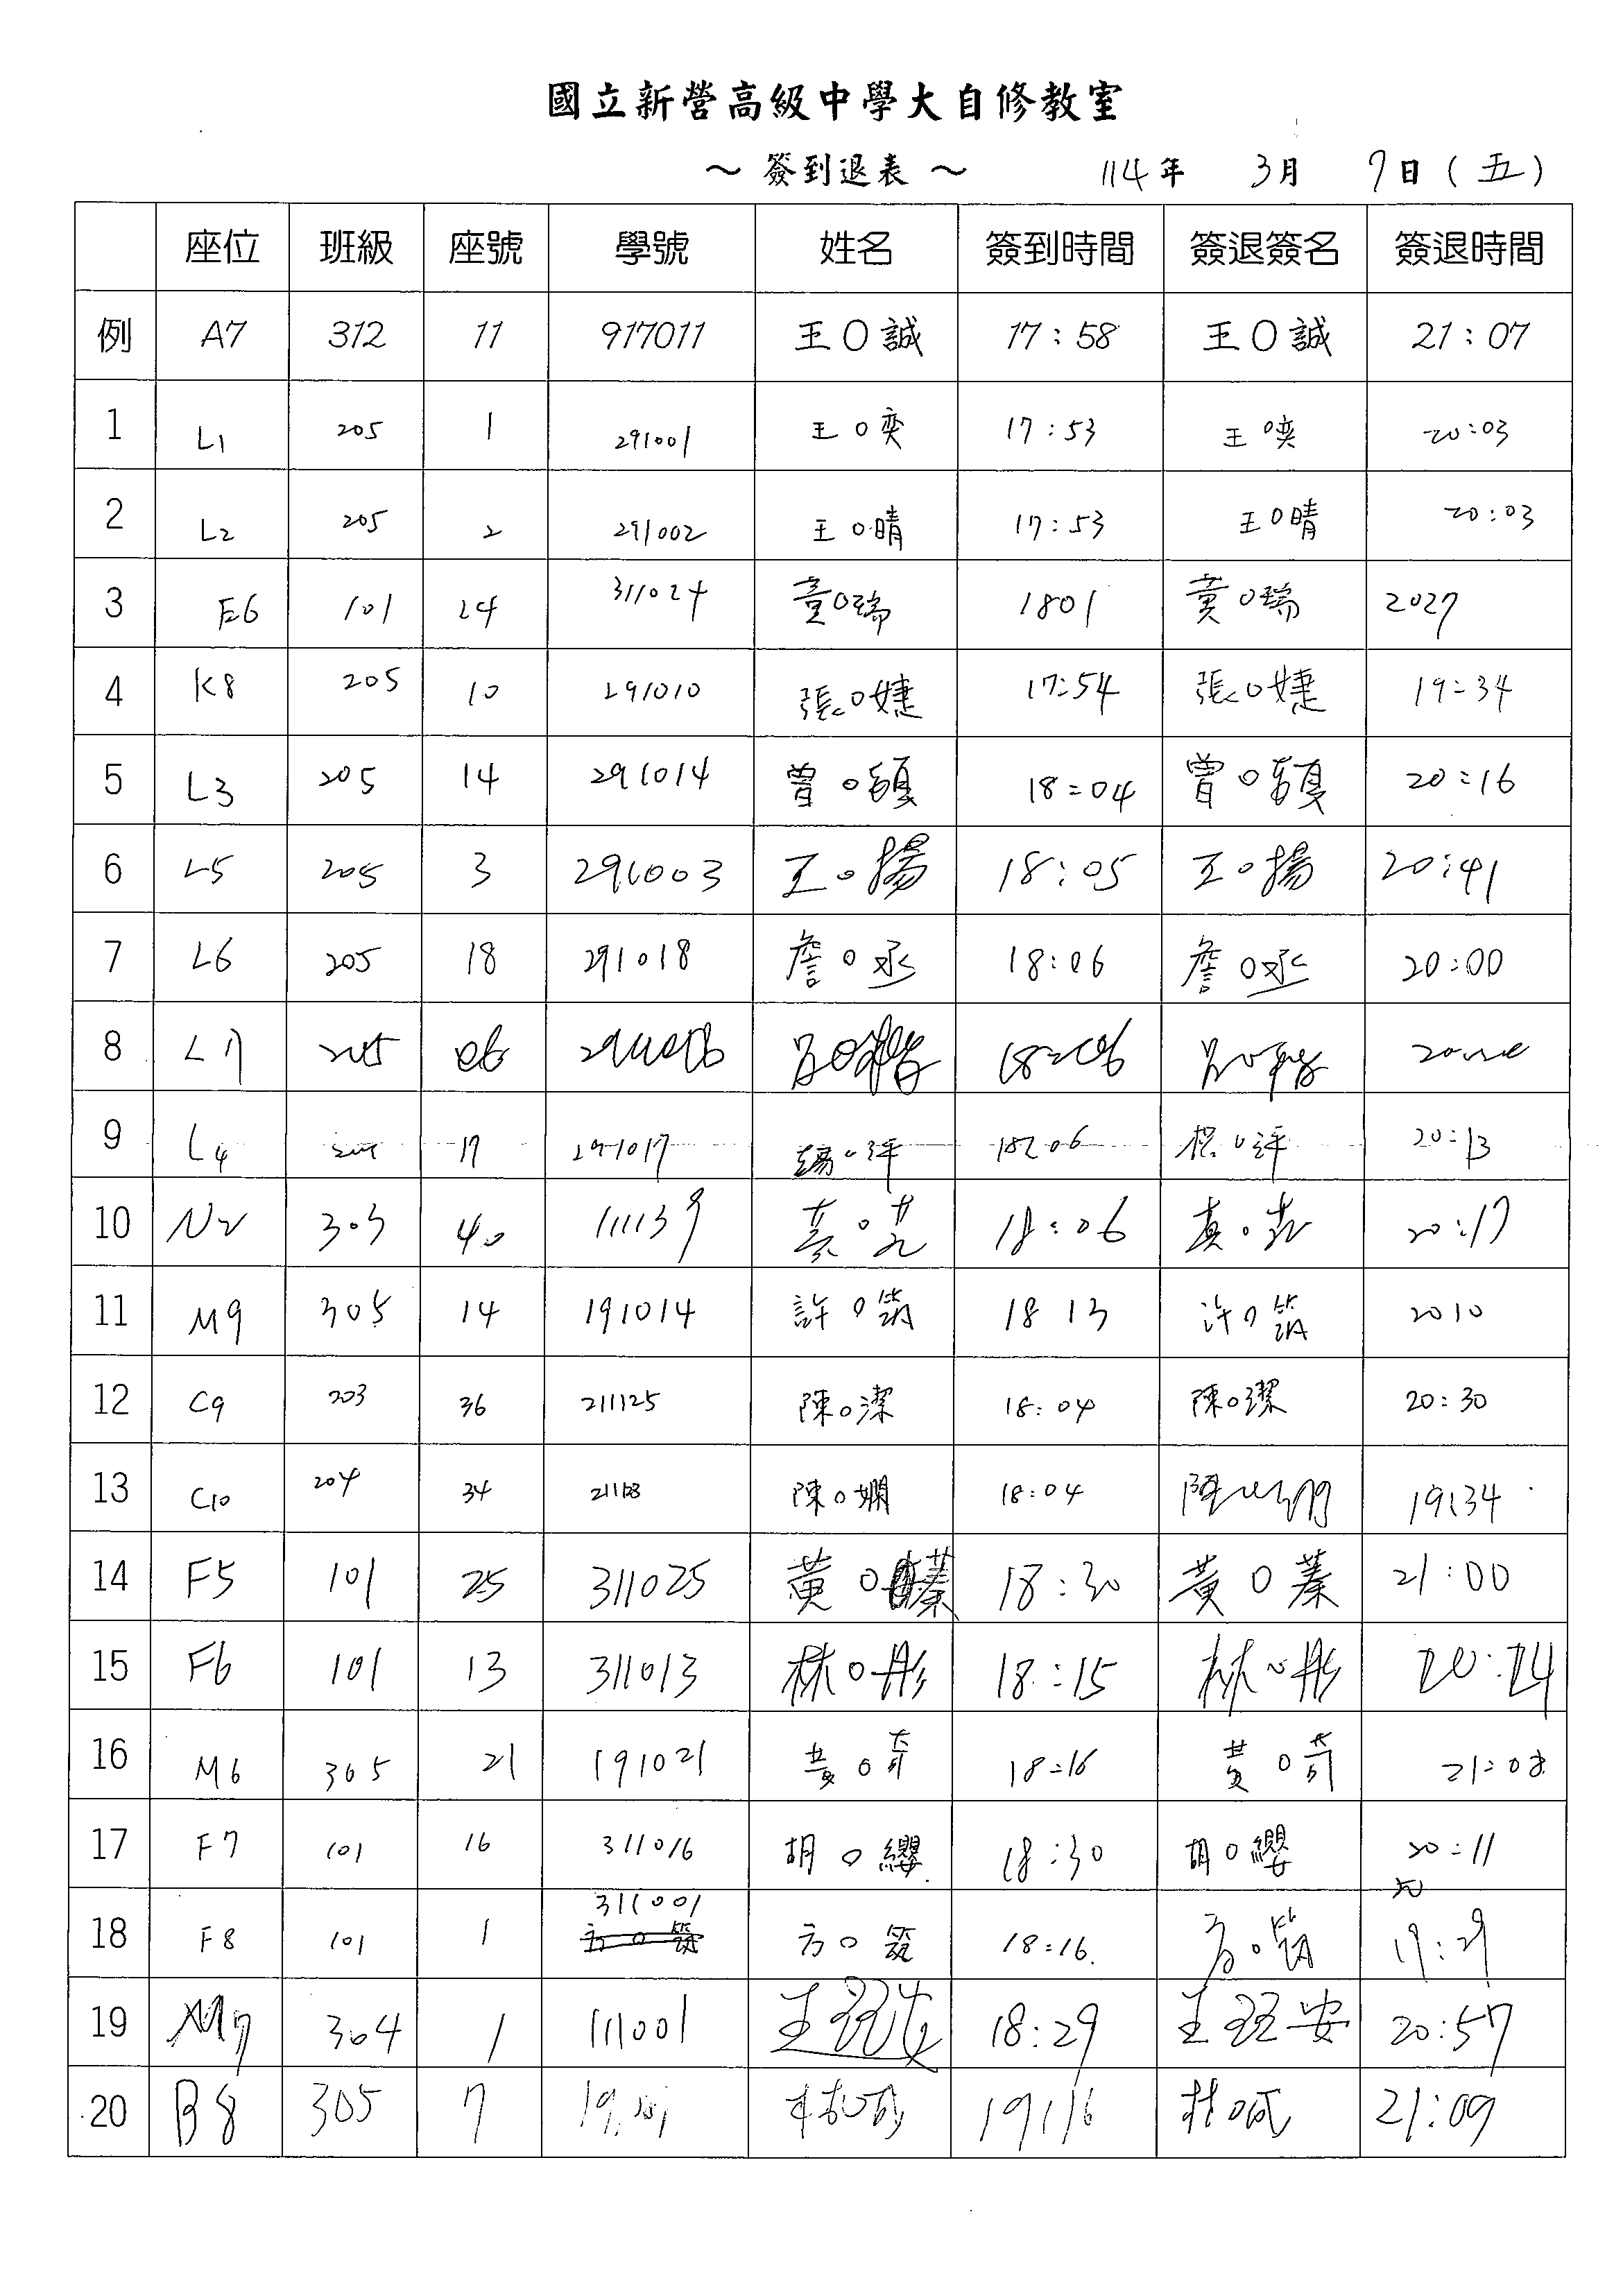 國立新營高級中學大自修教室
～ 簽到退表 ～ 114年 3月 7日 (五)
座位 班級 座號 學號 姓名 簽到時間 簽退簽名 簽退時間
例 A7 312 11 917011 王O誠 17:58 王O誠 21:07
1 L1 205 1 291001 王O奕 17:53 王O奕 20:03
2 L2 205 2 291002 王O晴 17:53 王O晴 20:03
3 E6 101 24 311024 黃O瑞 1801 黃O瑞 2027
4 K8 205 10 291010 張O婕 17:54 張O婕 19:34
5 L3 205 14 291014 曾O 18:04 曾O 20:16
6 L5 205 3 291003 王O揚 18:05 王O揚 20:41
7 L6 205 18 291018 詹O丞 18:06 詹O丞 20:00
8 L7 205 06 18:06
9 L4 17 291017 楊O評 18:06 楊O評 20:13
10 N2 303 40 111139 黃O 18:06 黃O 20:17
11 M9 305 14 191014 許O筑 18 13 許O筑 2010
12 C9 203 36 211125 陳O潔 18:04 陳O潔 20:30
13 C10 204 34 陳O嫻 18:04 陳O嫻 19:34
14 F5 101 25 311025 黃O蓁 18:30 黃O蓁 21:00
15 F6 101 13 311013 林O彤 18:15 林O彤 20:24
16 M6 305 21 191021 黃O 18:16 黃O 21:08
17 F7 101 16 311016 胡O纓 18:30 胡O纓 20:11
18 F8 101 1 311001 方O筑 18:16 方O筑 19:29
19 M7 304 1 111001 王 18:29 王 安 20:57
20 B8 305 7 19:16 21:09